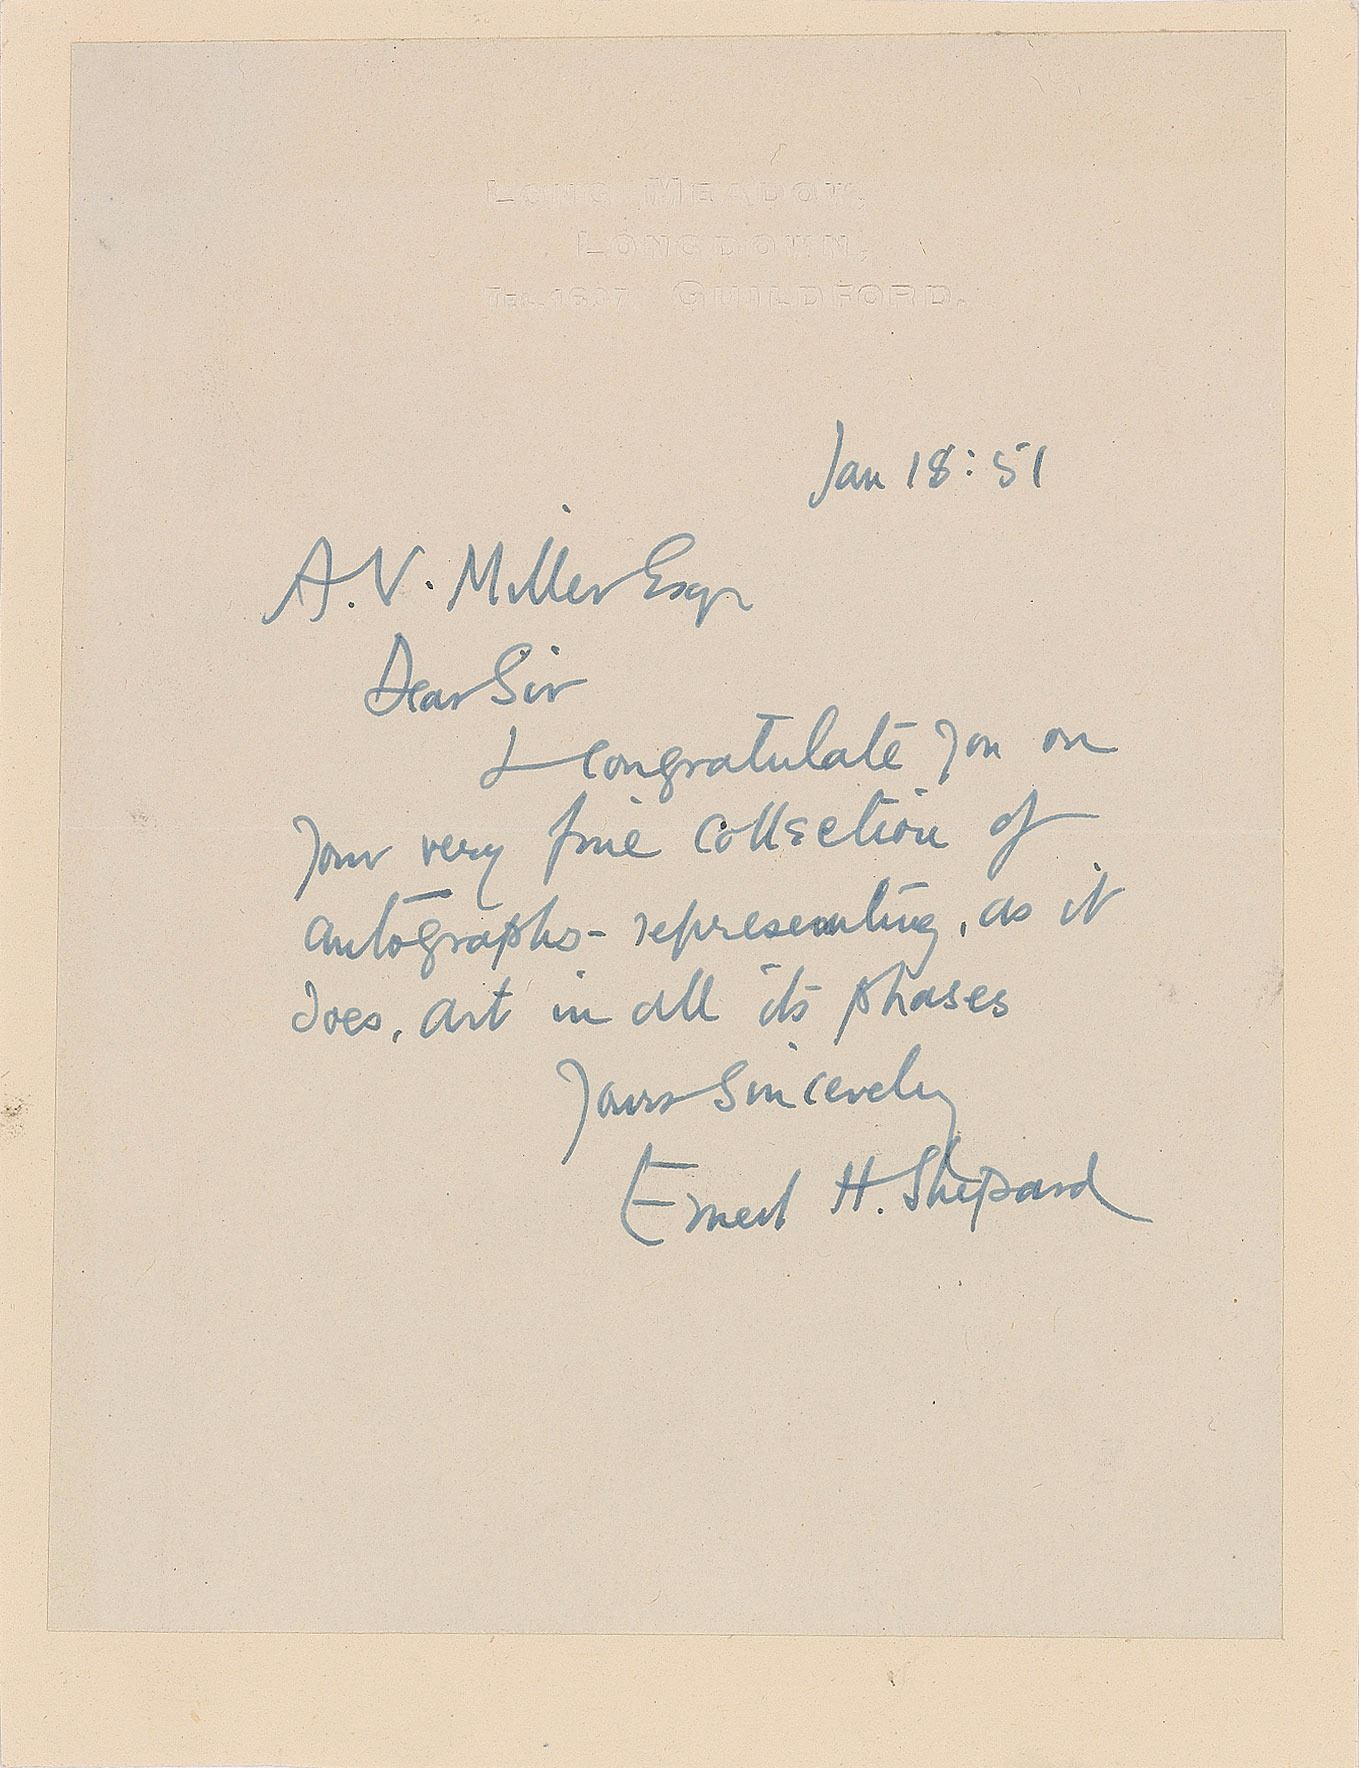 LONG MEADOW,
LONGDOWN,
TEL. 1607 GUILDFORD.
Jan 18: 51
A. V. Miller Esqr
Dear Sir
I congratulate you on
your very fine collection of
autographs - representing, as it
does, art in all its phases
Yours Sincerely
Ernest H. Shepard